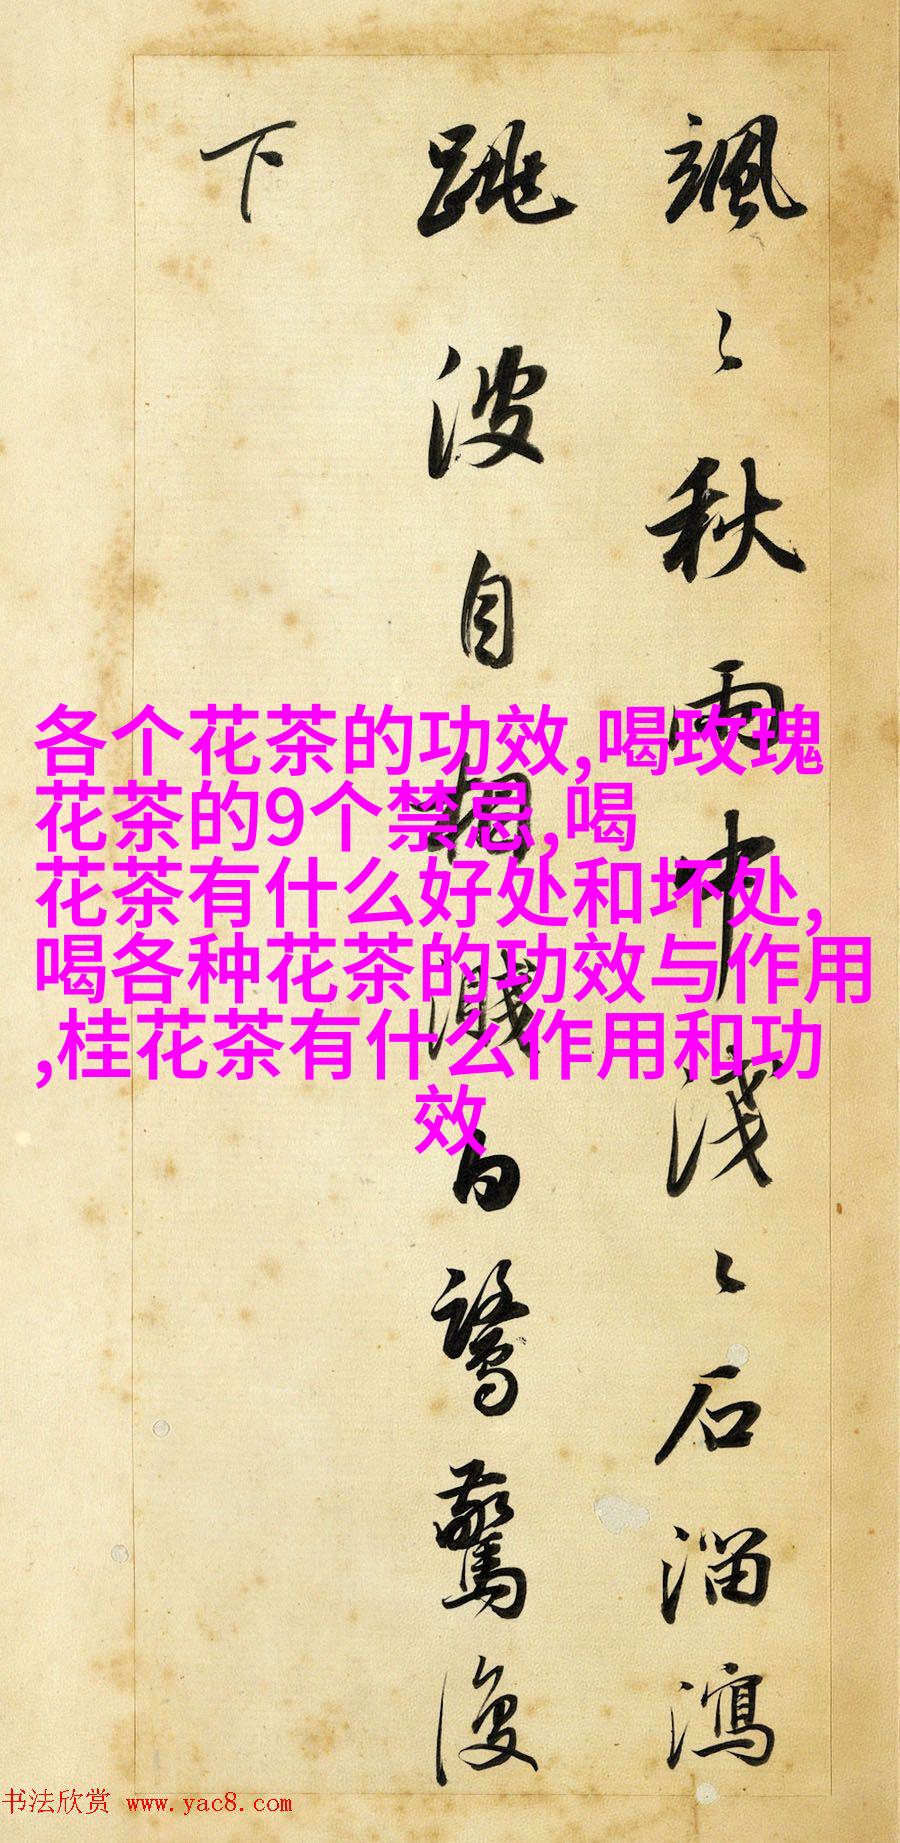 颯〻秋雨中淺〻石溜瀉
跳波自相濺白鷺驚復
下
各个花茶的功效,喝玫瑰
花茶的9个禁忌,喝
花茶有什么好处和坏处,
喝各种花茶的功效与作用
,桂花茶有什么作用和功
效
书法欣赏 www.yac8.com